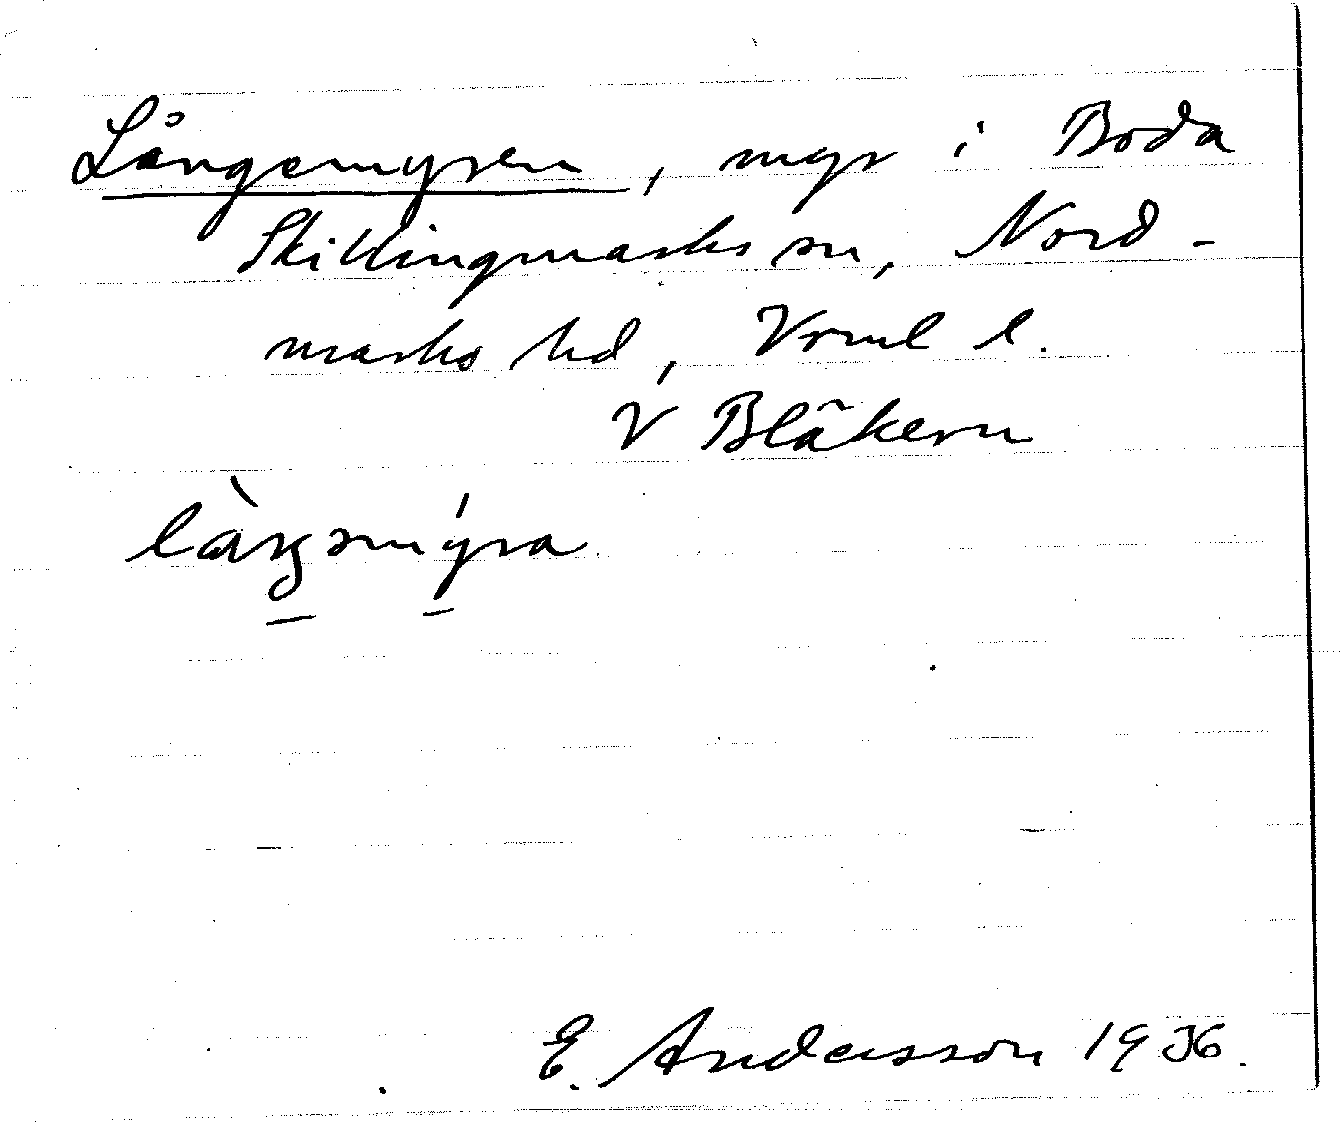 Långemyren, myr i Boda
Skillingmarks sn, Nord-
marks hd, Vrml l.
V Blåkern
E. Andersson 1936.